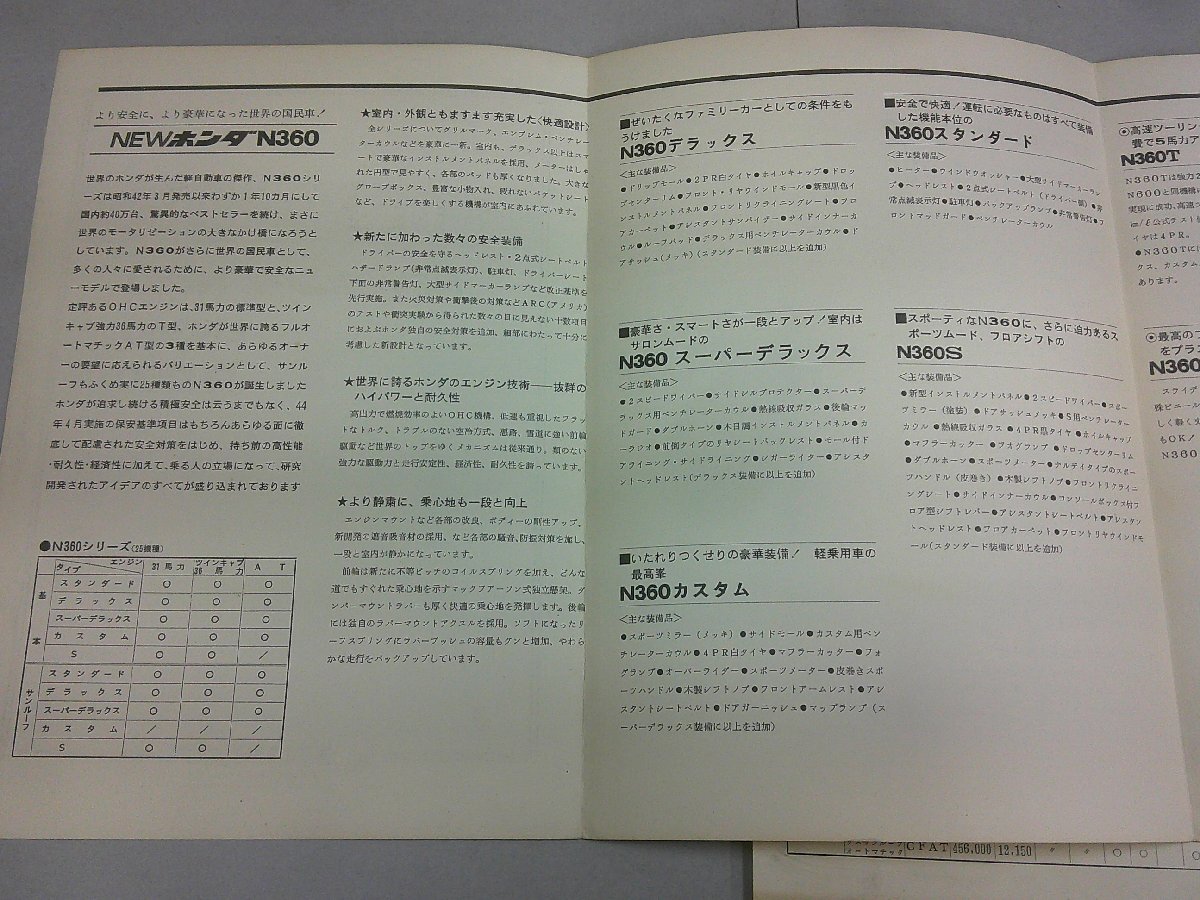 より安全に、より豪華になった世界の国民車!
NEWホンダN360
世界のホンダが生んだ軽自動車の傑作、N360シリ
ーズは昭和42年3月発売以来わずか1年10カ月にして
国内約40万台、驚異的なベストセラーを続け、まさに
世界のモータリゼーションの大きなかけ橋になろうと
しています。N360がさらに世界の国民車として、
多くの人々に愛されるために、より豪華で安全なニュ
ーモデルで登場しました。
定評あるOHCエンジンは、31馬力の標準型と、ツイン
キャブ強力36馬力のT型、ホンダが世界に誇るフルオ
ートマチックAT型の3種を基本に、あらゆるオーナ
ーの要望に応えられるバリエーションとして、サンル
ーフもふくめ実に25種類ものN360が誕生しました
ホンダが追求し続ける積極安全は云うまでもなく、44
年4月実施の保安基準項目はもちろんあらゆる面に徹
底して配慮された安全対策をはじめ、持ち前の高性能
・耐久性・経済性に加えて、乗る人の立場になって、研究
開発されたアイデアのすべてが盛り込まれております
●N360シリーズ(25機種)
タイプ エンジン 31馬力 ツインキャブ36馬力 AT
基本
スタンダード ○ ○ ○
デラックス ○ ○ ○
スーパーデラックス ○ ○ ○
カスタム ○ ○ ○
S ○ ○ /
サンルーフ
スタンダード ○ ○ ○
デラックス ○ ○ ○
スーパーデラックス ○ ○ ○
カスタム / / /
S ○ ○ /
★室内・外観ともますます充実した〈快適設計〉
全シリーズについてグリルマーク、エンブレム・ベンチレー
ターカウルなどを豪華に一新。室内も、デラックス以上はスマ
ートで豪華なインストルメントパネルを採用、メーターはしゃ
れた円型で見やすく、各部のパッドも厚くなりました。大きな
グローブボックス、豊富な小物入れ、疲れないバケットシート
など、ドライブを楽しくする機構が室内にあふれています。
★新たに加わった数々の安全装備
ドライバーの安全を守るヘッドレスト・2点式シートベルト
ハザードランプ(非常点滅表示灯)、駐車灯、ドライバーシート
下面の非常警告灯、大型サイドマーカーランプなど改止基準を
先行実施。また火災対策や衝撃後の対策などARC(アメリカ)
のテストや衝突実験から得られた数々の目に見えない十数項目
におよぶホンダ独自の安全対策を追加、細部にわたって十分に
考慮した新設計となっています。
★世界に誇るホンダのエンジン技術――抜群の
ハイパワーと耐久性
高出力で燃焼効率のよいOHC機構、低速も重視したフラッ
トなトルク、トラブルのない空冷方式、悪路、雪道に強い前輪
駆動など世界のトップをゆくメカニズムは従来通り、類のない
強力な駆動力と走行安定性、経済性、耐久性を誇っています。
★より静粛に、乗心地も一段と向上
エンジンマウントなど各部の改良、ボディーの剛性アップ、
新開発の遮音吸音材の採用、など各部の騒音、防振対策を施し、
一段と室内が静かになっています。
前輪は新たに不等ピッチのコイルスプリングを加え、どんな
道でもすぐれた乗心地を示すマックファーソン式独立懸架。ダ
ンパーマウントラバーも厚く快適な乗心地を発揮します。後輪
には独自のラバーマウントアクスルを採用。ソフトになったリ
ーフスプリングにラバーブッシュの容量もグンと増加、やわら
かな走行をバックアップしています。
■ぜいたくなファミリーカーとしての条件をも
うけました
N360デラックス
〈主な装備品〉
●ドリップモール●2PR白タイヤ●ホイルキャップ●ドロッ
プセンターリム●フロント・リヤウインドモール●新型黒色イ
ンストルメントパネル●フロントリクライニングシート●フロ
アカーペット●アシスタントサンバイザー●サイドインナーカ
ウル●ルーフパッド●デラックス用ベンチレーターカウル●ド
アサッシュ(メッキ)(スタンダード装備に以上を追加)
■豪華さ・スマートさが一段とアップ!室内は
サロンムードの
N360 スーパーデラックス
〈主な装備品〉
●2スピードワイパー●サイドシルプロテクター●スーパーデ
ラックス用ベンチレーターカウル●熱線吸収ガラス●後輪マッ
ドガード●ダブルホーン●木目調インストルメントパネル●カ
ーラジオ●前倒タイプのリヤシートバックレスト●モール付ド
アライニング・サイドライニング●シガーライター●アシスタ
ントヘッドレスト(デラックス装備に以上を追加)
■いたれりつくせりの豪華装備! 軽乗用車の
最高峯
N360カスタム
〈主な装備品〉
●スポーツミラー(メッキ)●サイドモール●カスタム用ベン
チレーターカウル●4PR白タイヤ●マフラーカッター●フォ
グランプ●オーバーライダー●スポーツメーター●皮巻きスポ
ーツハンドル●木製シフトノブ●フロントアームレスト●アシ
スタントシートベルト●ドアガーニッシュ●マップランプ(ス
ーパーデラックス装備に以上を追加)
■安全で快適!運転に必要なものはすべて装備
した機能本位の
N360スタンダード
〈主な装備品〉
●ヒーター●ウインドウオッシャー●大型サイドマーカーラン
プ●ヘッドレスト●2点式シートベルト(ドライバー側)●非
常点滅表示灯●駐車灯●バックアップランプ●非常警告灯●フ
ロントマッドガード●ベンチレーターカウル
■スポーティなN360に、さらに迫力あるス
ポーツムード、フロアシフトの
N360S
〈主な装備品〉
●新型インストルメントパネル●2スピードワイパー●スポー
ツミラー(塗装)●ドアサッシュメッキ●S用ベンチレーター
カウル●熱線吸収ガラス●4PR黒タイヤ●ホイルキャップ
●マフラーカッター●フォグランプ●ドロップセンターリム
●ダブルホーン●スポーツメーター●ナルディタイプのスポー
ツハンドル(皮巻き)●木製シフトノブ●フロントリクライニ
ングシート●サイドインナーカウル●コンソールボックス付フ
ロア型シフトレバー●アシスタントシートベルト●アシスタン
トヘッドレスト●フロアカーペット●フロントリヤウインドモ
ール(スタンダード装備に以上を追加)
●高速ツーリン
費で5馬力ア
N360T
N360Tは強力
N600と同機構
実現に成功、高速
イヤは4PR。
●N360Tに
クス、カスタム
あります。
●最高の
をプラ
N360
スライ
しく軽く
もOK
N360
オートマチック CFAT 456,000 12,150 〃 〃 ○ ○